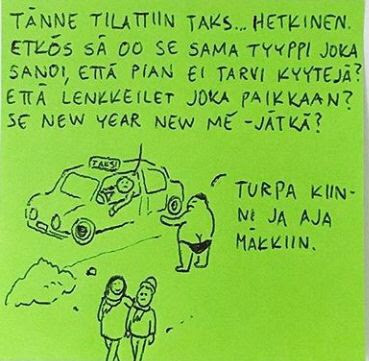 TÄNNE TILATTIIN TAKS... HETKINEN.
ETKÖS SÄ OO SE SAMA TYYPPI JOKA
SANOI, ETTÄ PIAN EI TARVI KYYTEJÄ?
ETTÄ LENKKEILET JOKA PAIKKAAN?
SE NEW YEAR NEW ME -JÄTKÄ?
TAKSI
TURPA KIIN-
NI JA AJA
MÄKKIIN.